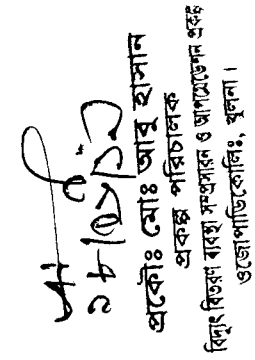 প্রকৌঃ মোঃ আবু হাসান
প্রকল্প পরিচালক
বিদ্যুৎ বিতরণ ব্যবস্থা সম্প্রসারন ও আপগ্রেডেশন প্রকল্প
ওজোপাডিকোলিঃ, খুলনা।